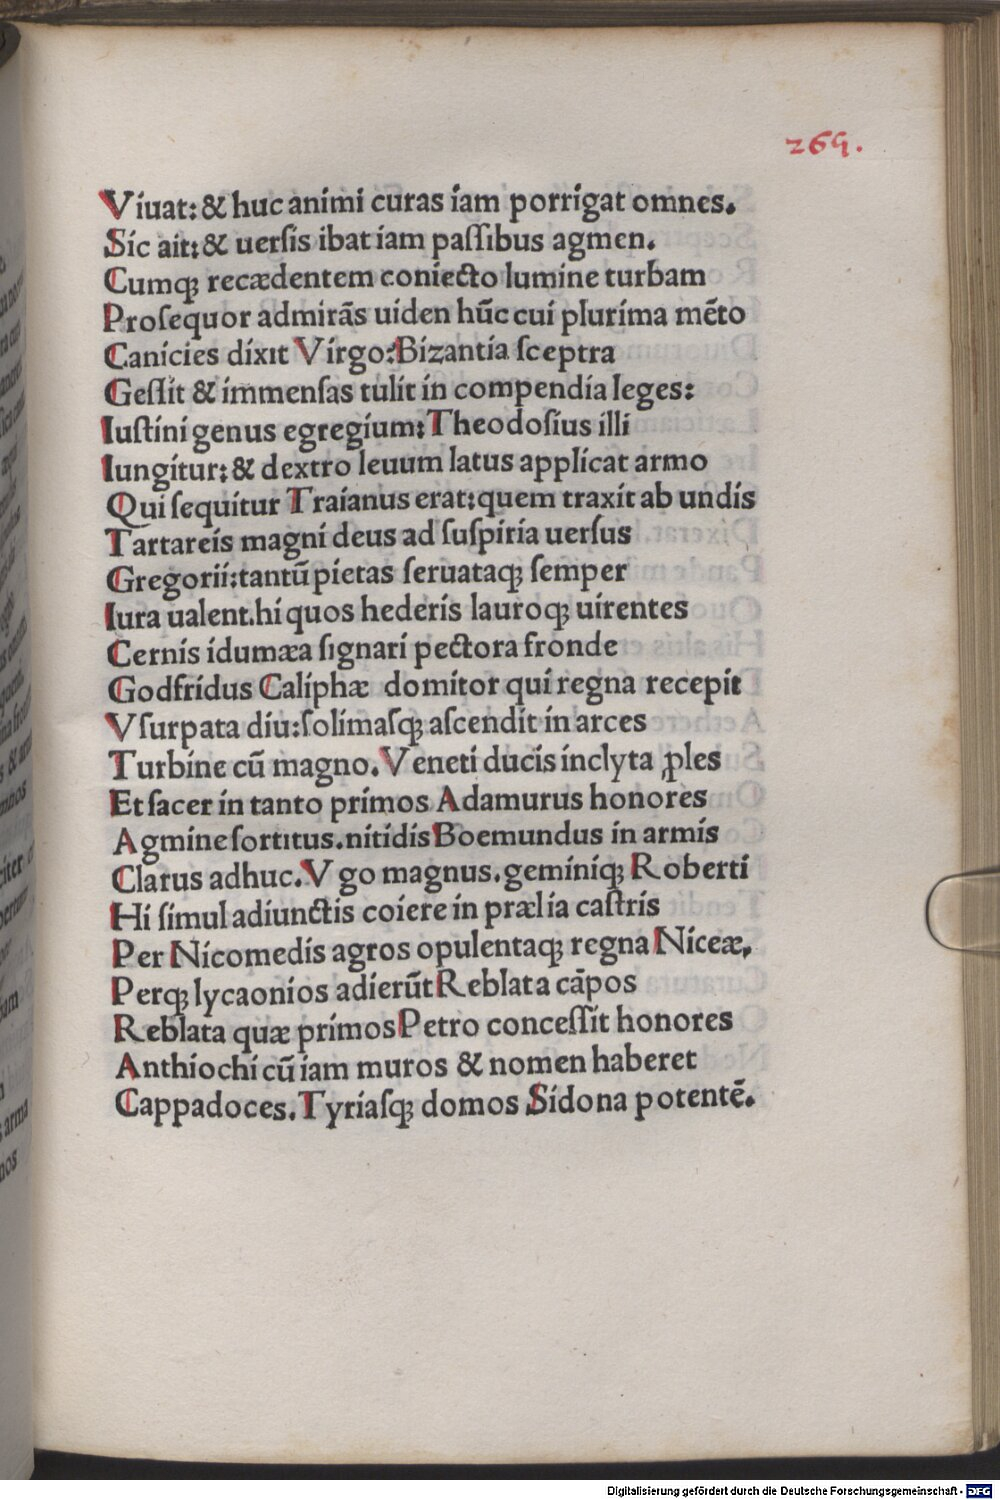 269.
Viuat: & huc animi curas iam porrigat omnes.
Sic ait: & uersis ibat iam paſſibus agmen.
Cumqꝫ recædentem coniecto lumine turbam
Proſequor admirãs uiden hũc cui plurima mẽto
Canicies dixit Virgo: Bizantia ſceptra
Geſſit & immenſas tulit in compendia leges:
Iuſtini genus egregium: Theodoſius illi
Iungitur: & dextro leuum latus applicat armo
Qui ſequitur Traianus erat: quem traxit ab undis
Tartareis magni deus ad ſuſpiria uerſus
Gregorii: tantũ pietas ſeruataqꝫ ſemper
Iura ualent. hi quos hederis lauroqꝫ uirentes
Cernis idumæa ſignari pectora fronde
Godfridus Caliphæ domitor qui regna recepit
Vſurpata diu: ſolimaſqꝫ aſcendit in arces
Turbine cũ magno. Veneti ducis inclyta ꝓles
Et ſacer in tanto primos Adamurus honores
Agmine ſortitus. nitidis Boemundus in armis
Clarus adhuc. V go magnus. geminiqꝫ Roberti
Hi ſimul adiunctis coiere in prælia caſtris
Per Nicomedis agros opulentaqꝫ regna Niceæ,
Perqꝫ lycaonios adierũt Reblata cãpos
Reblata quæ primos Petro conceſſit honores
Anthiochi cũ iam muros & nomen haberet
Cappadoces. Tyriaſqꝫ domos Sidona potentẽ.
Digitalisierung gefördert durch die Deutsche Forschungsgemeinschaft - DFG